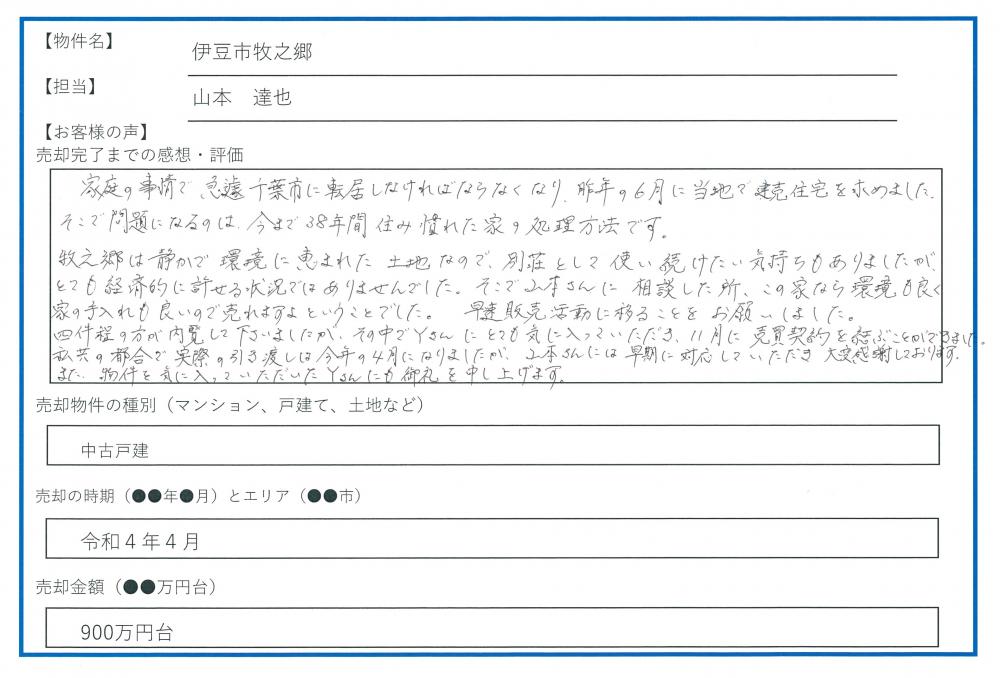 【物件名】
伊豆市牧之郷
【担当】
山本　達也
【お客様の声】
売却完了までの感想・評価
家庭の事情で急遽千葉市に転居しなければならなくなり、昨年の6月に当地で建売住宅を求めました。
そこで問題になるのは、今まで38年間住み慣れた家の処理方法です。
牧之郷は静かで環境に恵まれた土地なので、別荘として使い続けたい気持ちもありましたが、
とても経済的に許せる状況ではありませんでした。そこで山本さんに相談した所、この家なら環境も良く
家の手入れも良いので売れますよということでした。早速販売活動に移ることをお願いしました。
四件程の方が内覧して下いましたが、その中でYさんにとても気に入っていただき、11月に売買契約を結ぶことができました。
私共の都合で実際の引き渡しは今年の4月になりましたが、山本さんには早期に対応していただき大変感謝しております。
また、物件を気に入っていただいたYさんにも御礼を申し上げます。
売却物件の種別（マンション、戸建て、土地など）
中古戸建
売却の時期（●●年●月）とエリア（●●市）
令和４年４月
売却金額（●●万円台）
900万円台